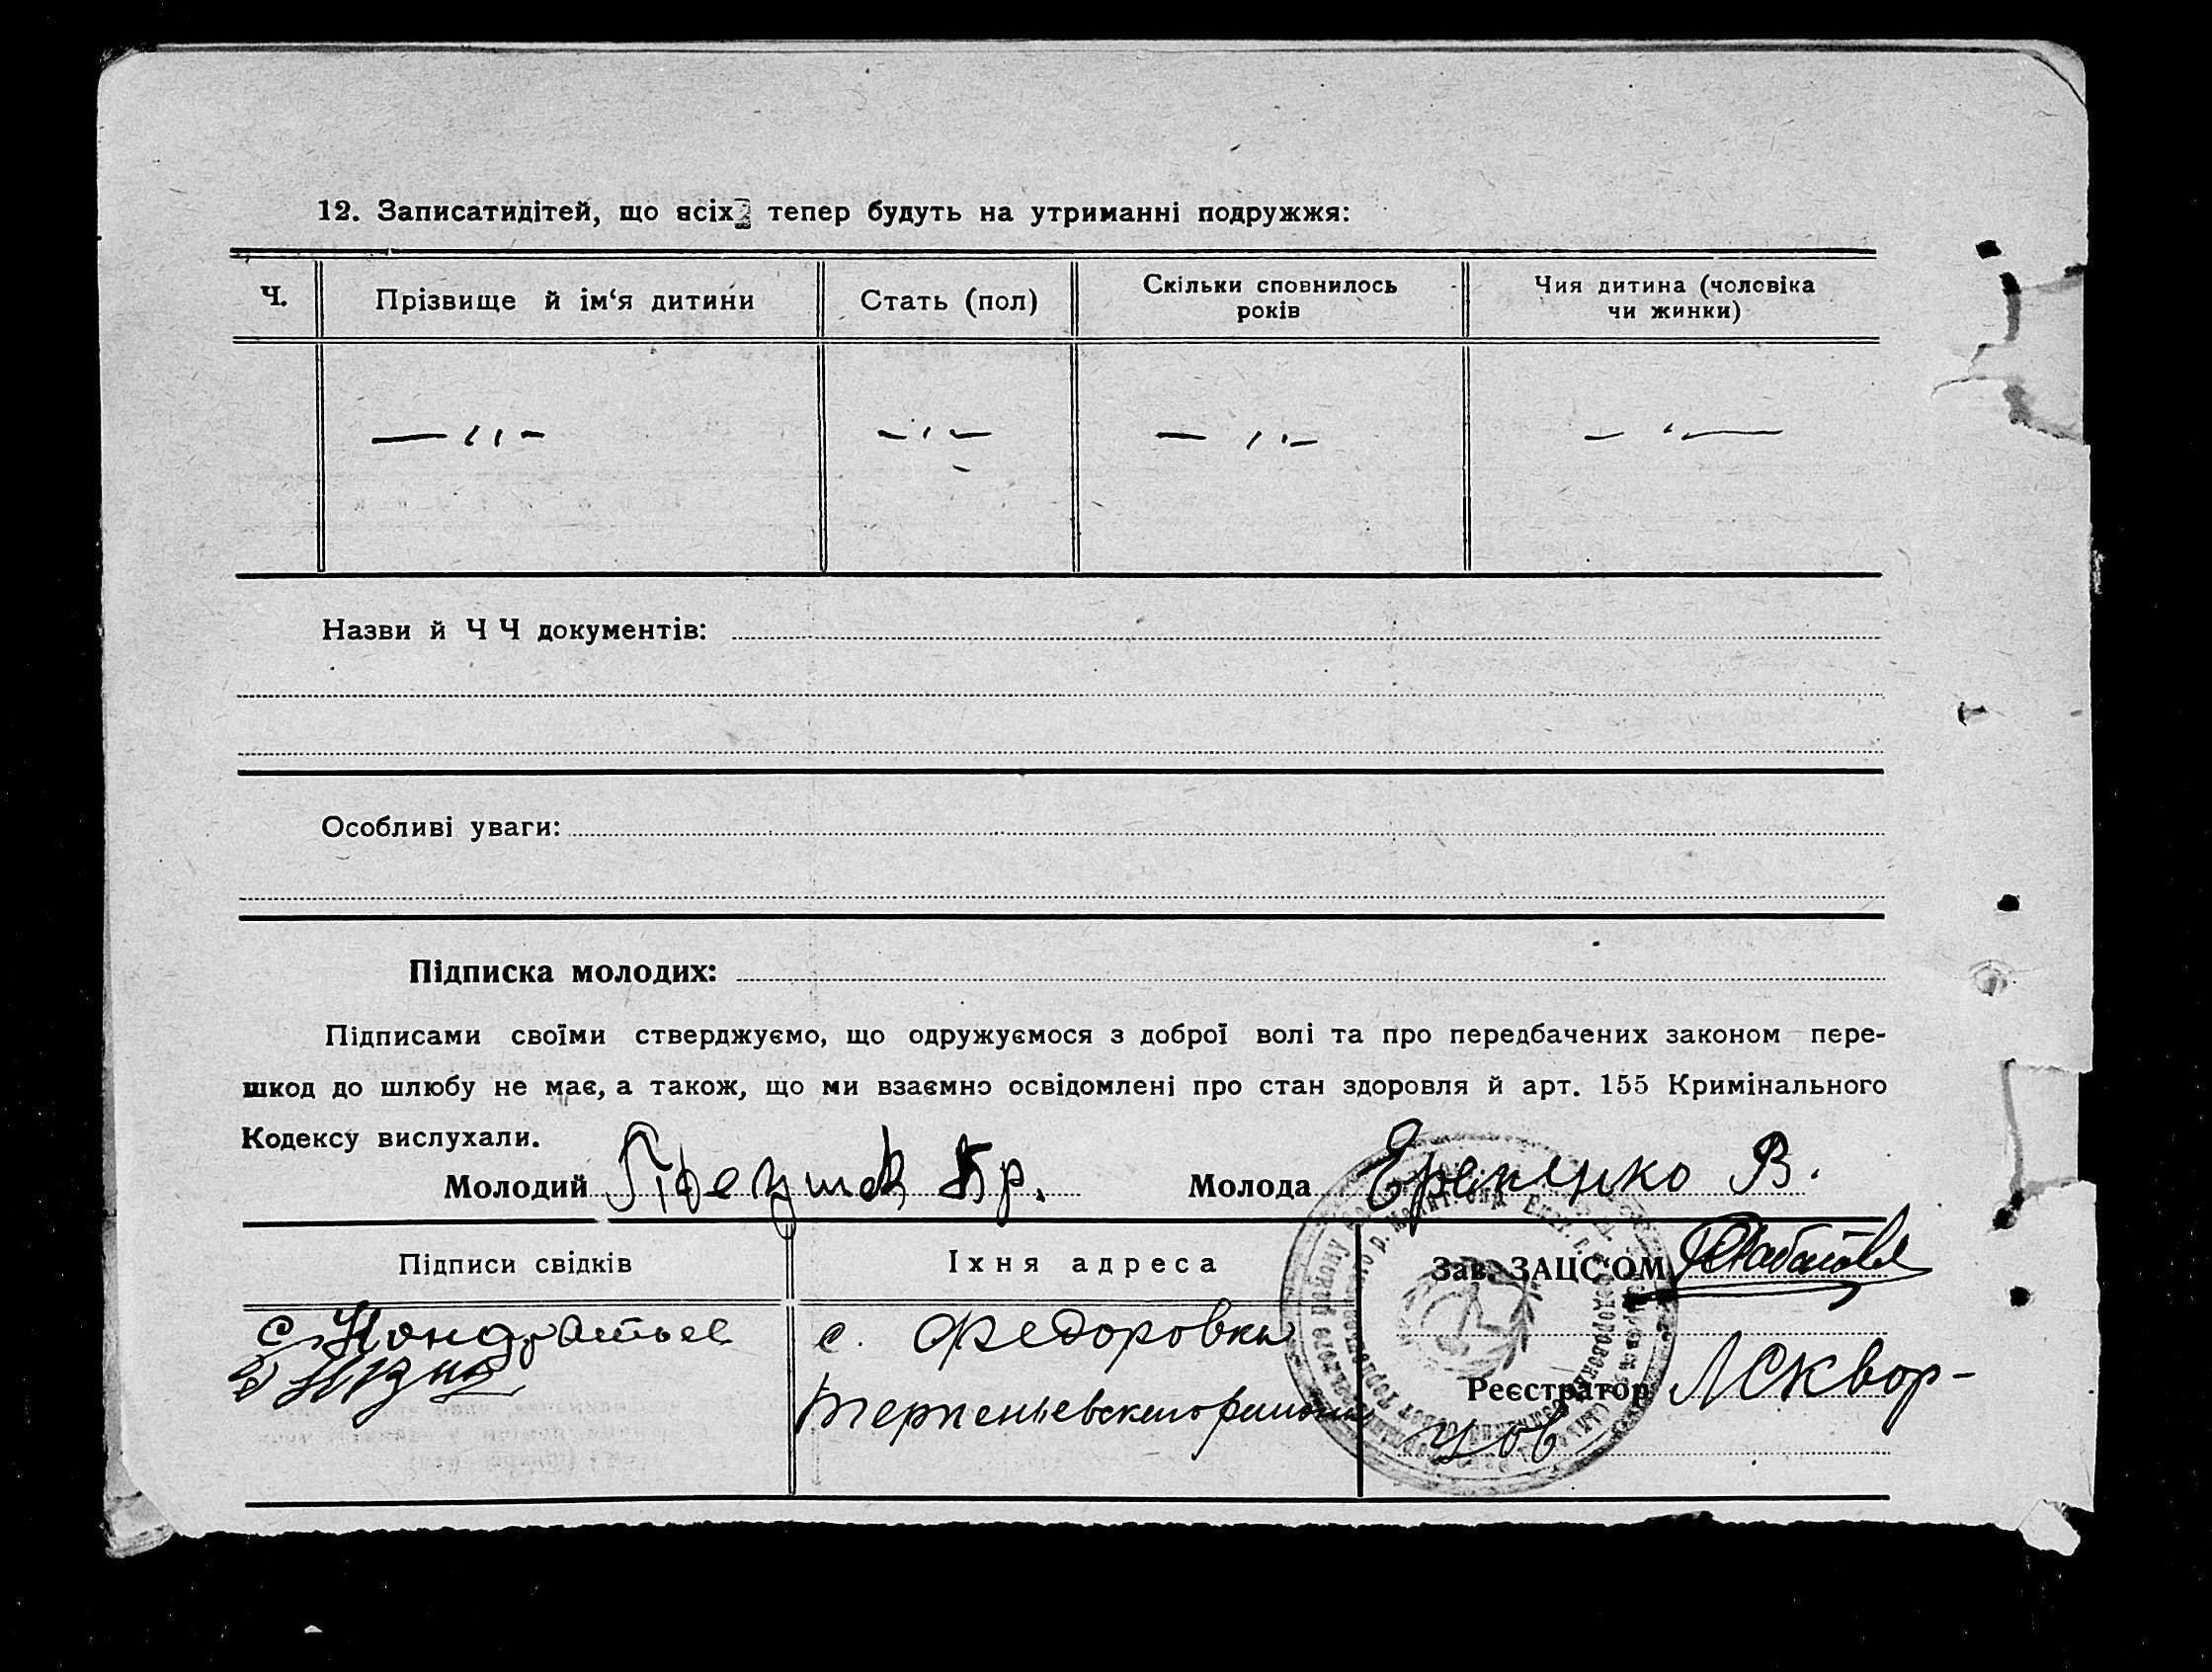 12. Записатидітей, що всіх тепер будуть на утриманні подружжя:
Ч.
Прізвище й ім‘я дитини
Стать (пол)
Скільки сповнилось
років
Чия дитина (чоловіка
чи жинки)
— ıı –
– ı –
– ıı –
– ı –
Назви й Ч Ч документів:
Особливі уваги:
Підписка молодих:
Підписами своїми стверджуємо, що одружуємося з доброї волі та про передбачених законом пере-
шкод до шлюбу не має, а також, що ми взаємно освідомлені про стан здоровля й арт. 155 Кримінального
Кодексу вислухали.
Молодий
Молода Еременко В.
Підписи свідків
Їхня адреса
Зав. ЗАЦС'ОМ
с. Федоровка
Терпеньевского района
Реєстратор Л Сквор-
цов